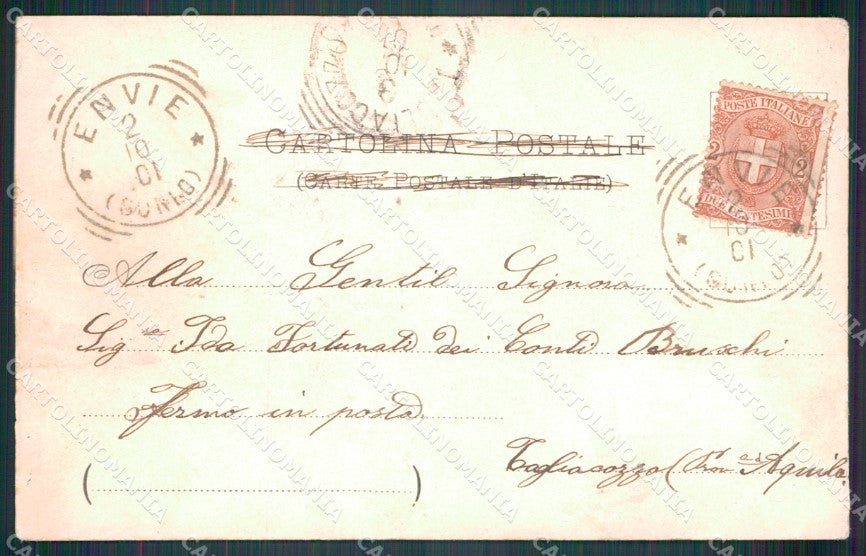 ENVIE
(CUNEO)
CARTOLINA POSTALE
(CARTE POSTALE D'ITALIE)
POSTE ITALIANE
2 2
DUE CENTESIMI
(CUNEO)
Alla Gentil Signora
Sig.ra Ida Fortunati dei Conti Bruschi
Fermo in posta
Tagliacozzo (Prov. ad Aquila
( )
CARTOLINOMANIA